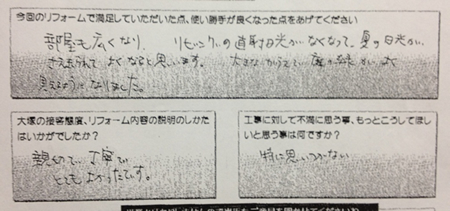 今回のリフォームで満足していただいた点、使い勝手が良くなった点をあげてください
部屋も広くなり、リビングの直射日光がなくなって、夏の日光が
さえぎられて よくなると思います。大きな 庭の緑が よく
見えるようになりました。
大塚の接客態度、リフォーム内容の説明のしかた
はいかがでしたか?
親切で、丁寧で
とてもよかったです。
工事に対して不満に思う事、もっとこうしてほし
いと思う事は何ですか?
特に思いつかない